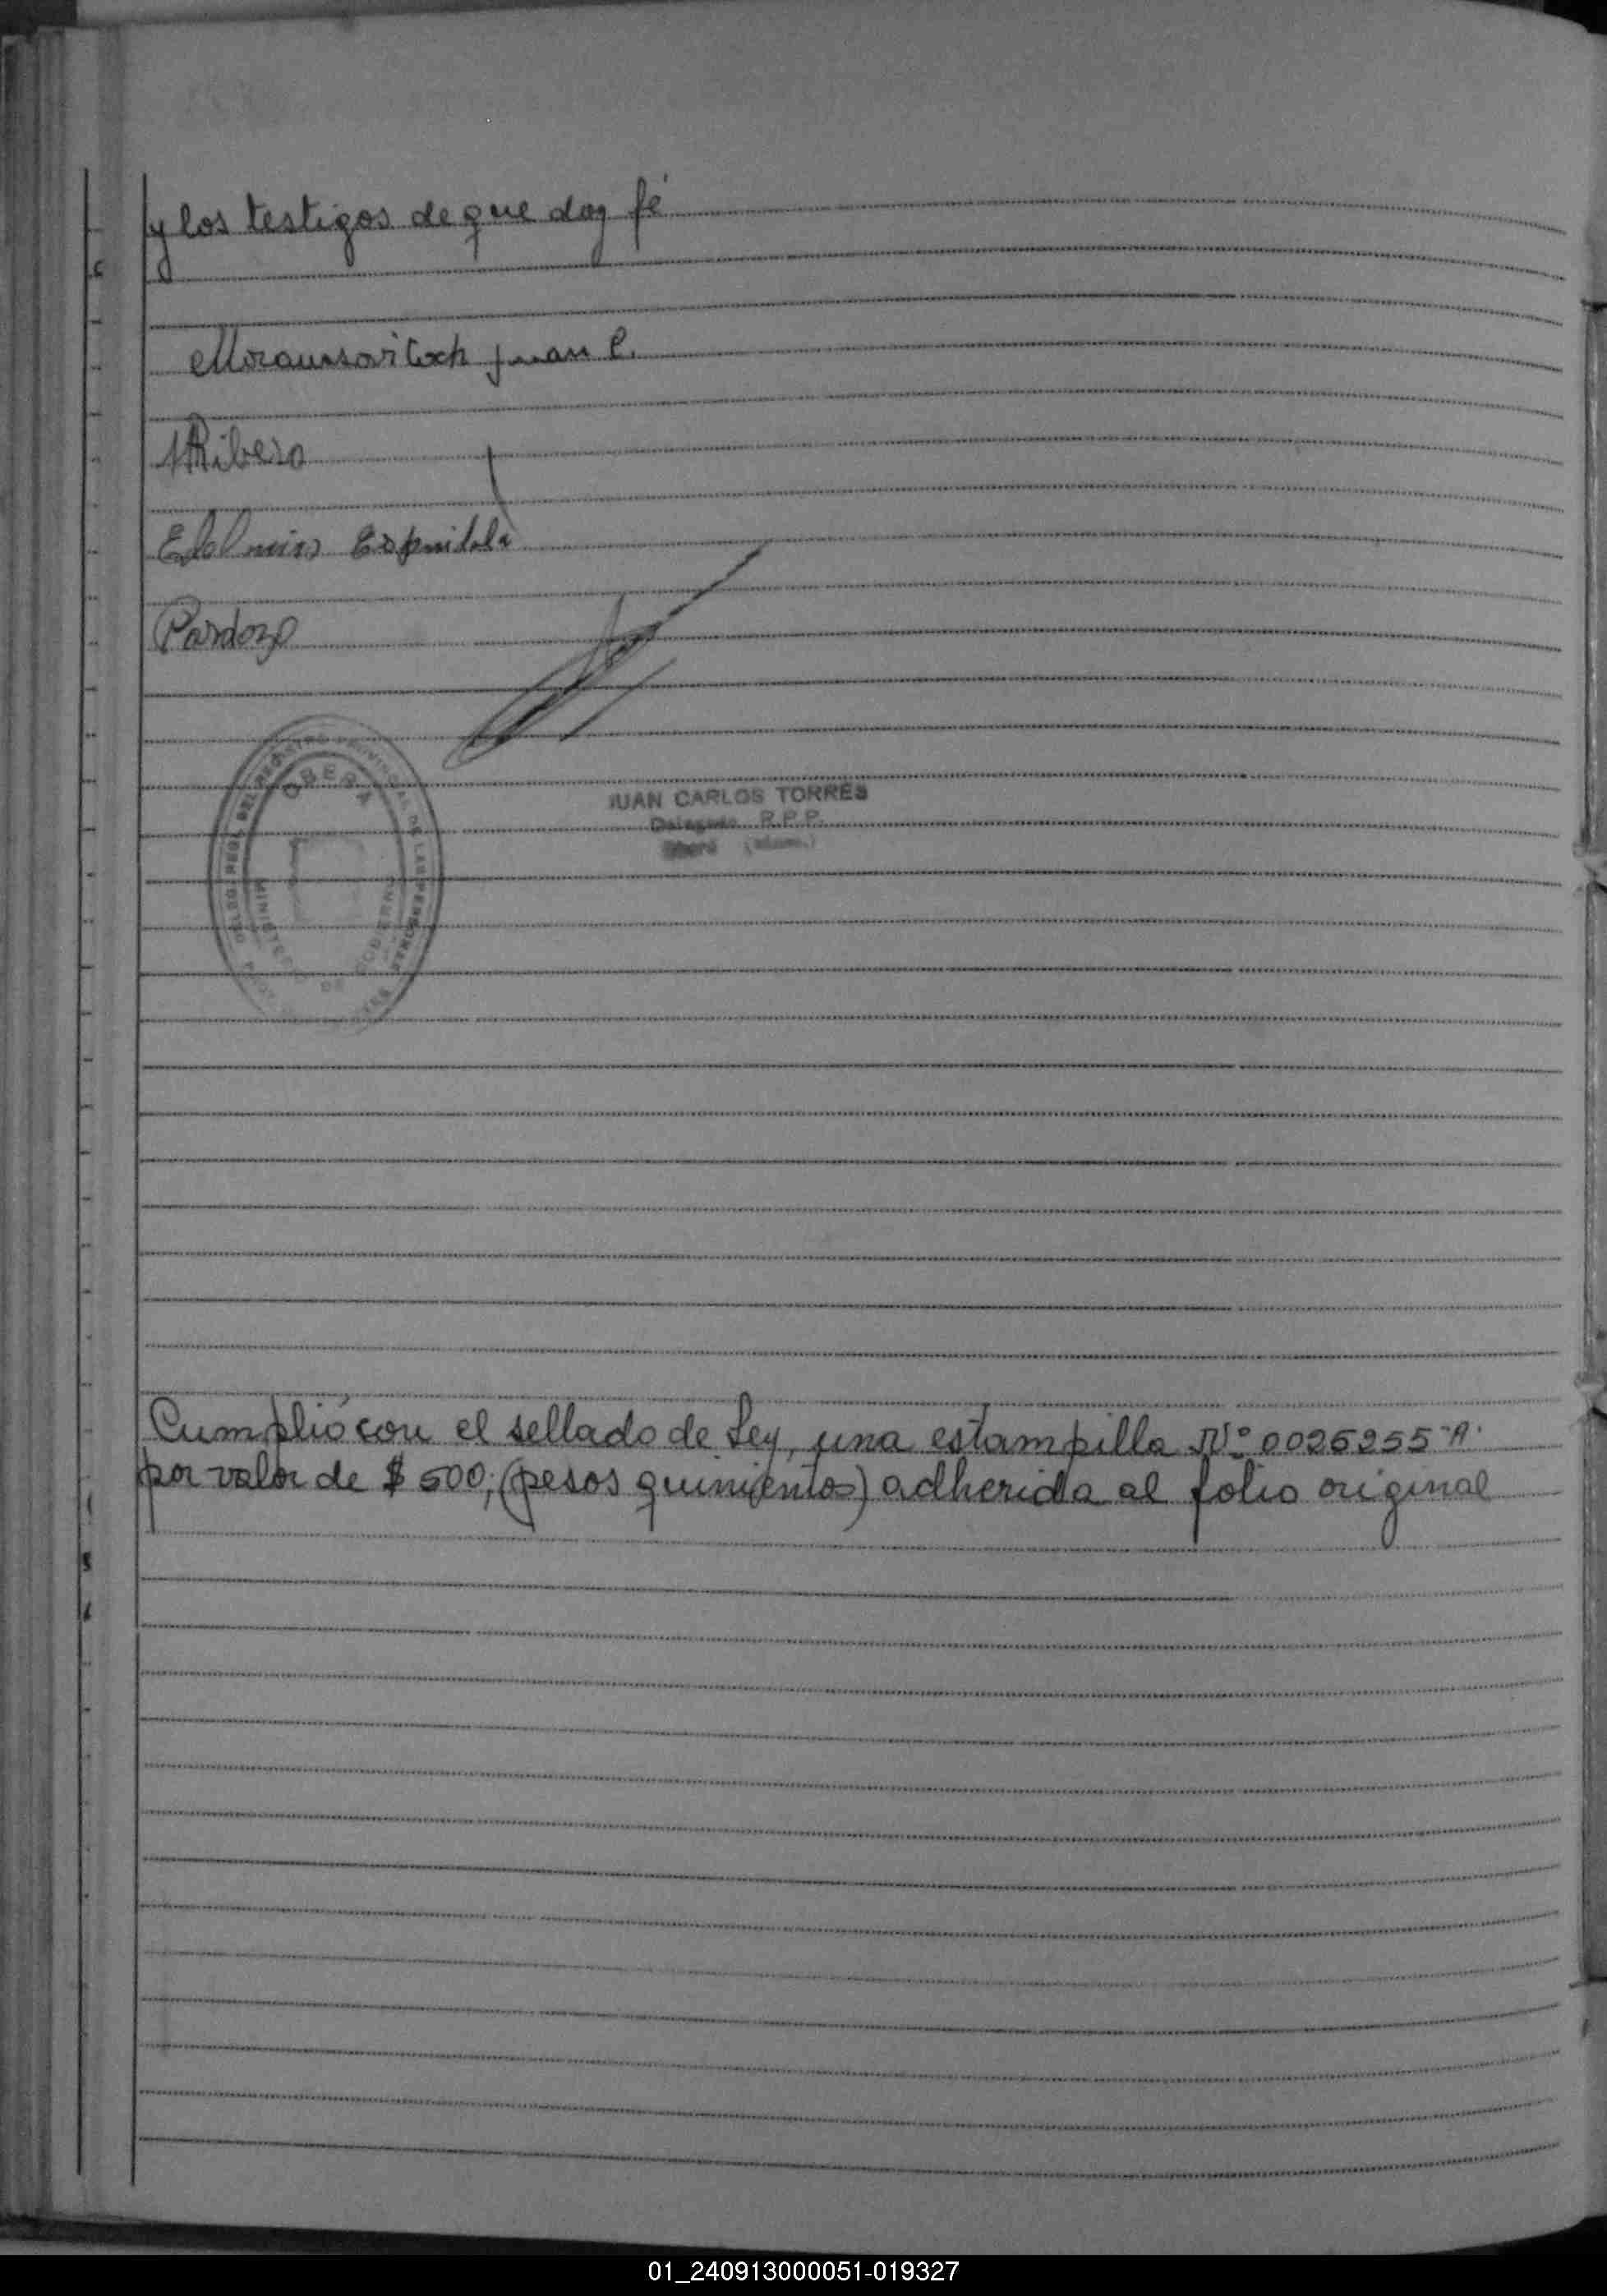 y los testigos de que doy fé
Juan C.
Ribero
Edelmiro Espindola
Pardozo
OBERA
MINISTERIO DE GOBIERNO
JUAN CARLOS TORRES
Delegado R.P.P.
Oberá (Mnes.)
Cumplió con el sellado de Ley, una estampilla Nº 0025255-A-
por valor de $ 500; (pesos quinientos) adherida al folio original
01_240913000051-019327